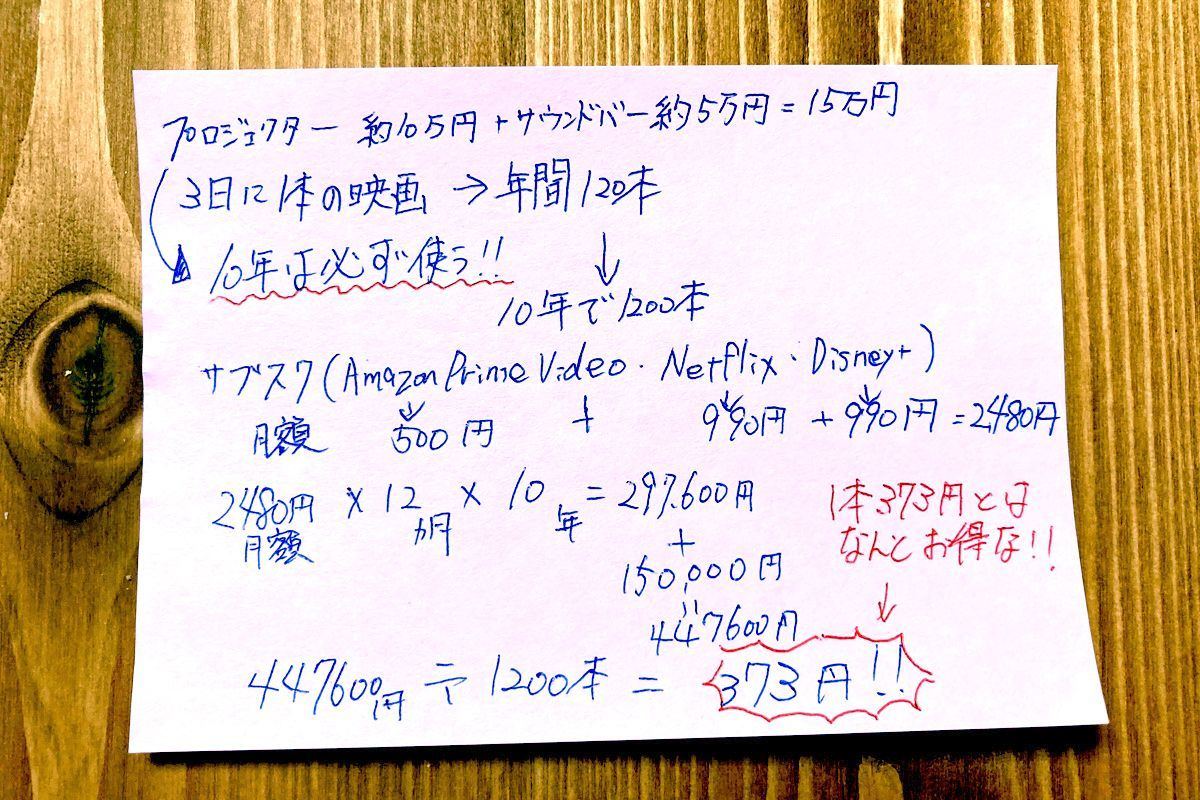 プロジェクター 約10万円 + サウンドバー約5万円 = 15万円
3日に1本の映画 → 年間120本
↓
10年は必ず使う!!
10年で1200本
サブスク(Amazon Prime Video・Netflix・Disney+)
月額 500円 + 990円 + 990円 = 2480円
2480円 × 12 × 10 = 297.600円
月額 カ月 年
+
150,000円
〃
447600円
1本373円とは
なんとお得な!!
↓
447600円 ÷ 1200本 = 373円!!